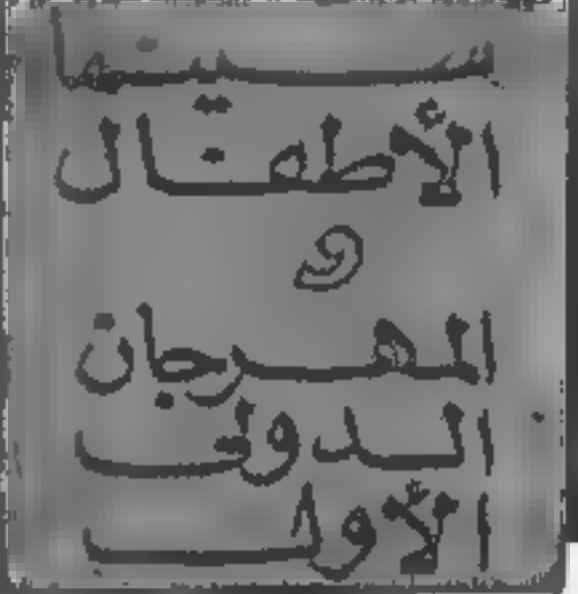 سينما
الأطفال
و
المهرجان
الدولى
الأول